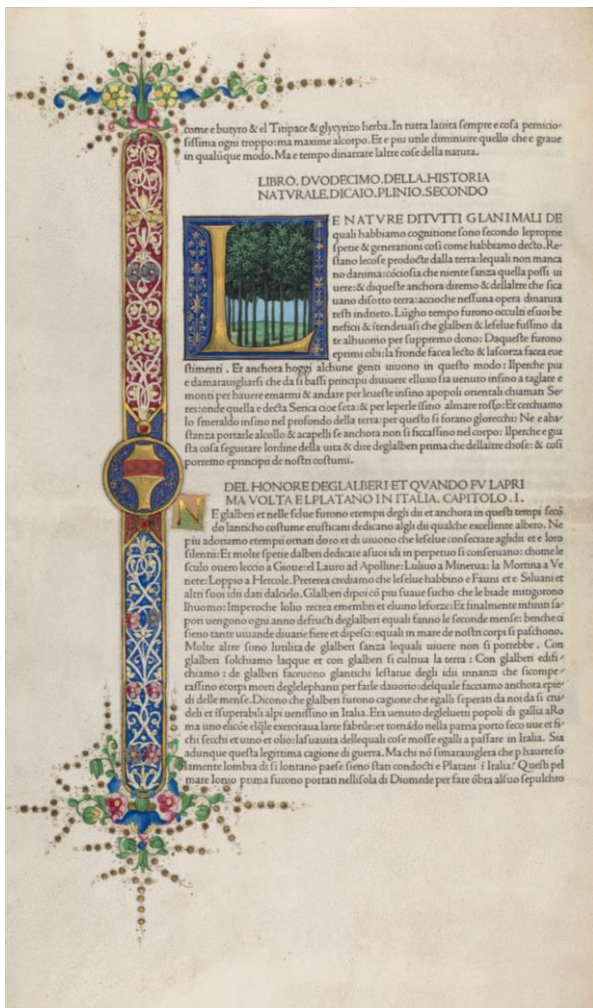 come e butyro & el Titipace & glycyrizo herba. In tutta lauita sempre e cosa pernicio⸗
sissima ogni troppo: ma maxime alcorpo. Et e piu utile diminuire quello che e graue
in qualūque modo. Ma e tempo dinarrare laltre cose della natura.
LIBRO. DVODECIMO. DELLA. HISTORIA
NATVRALE. DICAIO. PLINIO. SECONDO
LE NATVRE DITVTTI GLANIMALI DE
quali habbiamo cognitione sono secondo leproprie
spetie & generationi cosi come habbiamo decto. Re⸗
stano lecose prodocte dalla terra: lequali non manca
no danima: cōciosia che niente sanza quella possi ui
uere: & diqueste anchora diremo & dellaltre che sica
uano disotto terra: accioche nessuna opera dinatura
resti indrieto. Lūgho tempo furono occulti esuoi be
neficii & stendeuasi che glalberi & leselue fussino da
te alhuomo per suppremo dono: Daqueste furono
eprimi cibi: la fronde facea lecto & lascorza facea eue
stimenti. Et anchora hoggi alchune genti uiuono in questo modo: Ilperche piu
e damarauigliarsi che da si bassi principii diuiuere elluxo sia uenuto insino a tagliare e
monti per hauere emarmi & andare per leueste insino apopoli orientali chiaman Se⸗
res: onde quella e decta Serica cioe seta: & per leperle insino almare rosso: Et cerchiamo
lo smeraldo insino nel profondo della terra: per questo si forano glorecchi: Ne e aba⸗
stanza portarle alcollo & acapelli se anchora non si ficcassino nel corpo: Ilperche e giu
sta cosa seguitare lordine della uita & dire deglalberi prima che dellaltre chose: & cosi
porremo eprincipii de nostri costumi.
DEL HONORE DEGLALBERI ET QVANDO FV LAPRI
MA VOLTA EL PLATANO IN ITALIA. CAPITOLO. I.
NE glalberi et nelle selue furono etempii degli dii et anchora in questi tempi secō
do lanticho costume erusticani dedicano algli dii qualche excellente albero. Ne
piu adoriamo etempii ornati doro et di auorio che leselue consecrate aglidii et e loro
silentii: Et molte spetie dalberi dedicate asuoi idii in perpetuo si conseruano: chome le
sculo ouero leccio a Gioue: el Lauro ad Apolline: Luliuo a Minerua: la Mortina a Ve
nere: Loppio a Hercole. Preterea crediamo che leselue habbino e Fauni et e Siluani et
altri suoi idii dati dalcielo. Glalberi dipoi cō piu suaue sucho che le biade mitigorono
lhuomo: Imperoche lolio recrea emembri et eluino leforze: Et finalmente infiniti sa⸗
pori uengono ogni anno defructi deglalberi equali fanno le seconde mense: benche ci
sieno tante uiuande diuane fiere et dipesci: equali in mare de nostri corpi si paschono.
Molte altre sono lutilita de glalberi sanza lequali uiuere non si potrebbe. Con
glalberi solchiamo laqque et con glalberi si cultiua la terra: Con glalberi edifi⸗
chiamo: de glalberi faceuono glantichi lestatue degli idii innanzi che sicompe⸗
rassino ecorpi morti deglelephanti per farle dauorio: delquale facciamo anchora epie⸗
di delle mense. Dicono che glalberi furono cagione che egalli seperati da noi da si cru⸗
deli et īsuperabili alpi uenissino in Italia. Era uenuto deglelueti popoli di gallia aRo
ma uno elicōe elq̄le exercitaua larte fabrile: et tornādo nella patria porto seco uue et fi⸗
chi secchi et uino et olio: lasuauita dellequali cose mosse egalli a passare in Italia. Sia
adunque questa legittima cagione di guerra. Ma chi nō simarauiglera che p hauere so
lamente lombra di si lontano paese sieno stati condocti e Platani ī Italia? Questi pel
mare Ionio prima furono portati nellisola di Diomede per fare ōbra alsuo sepulchro